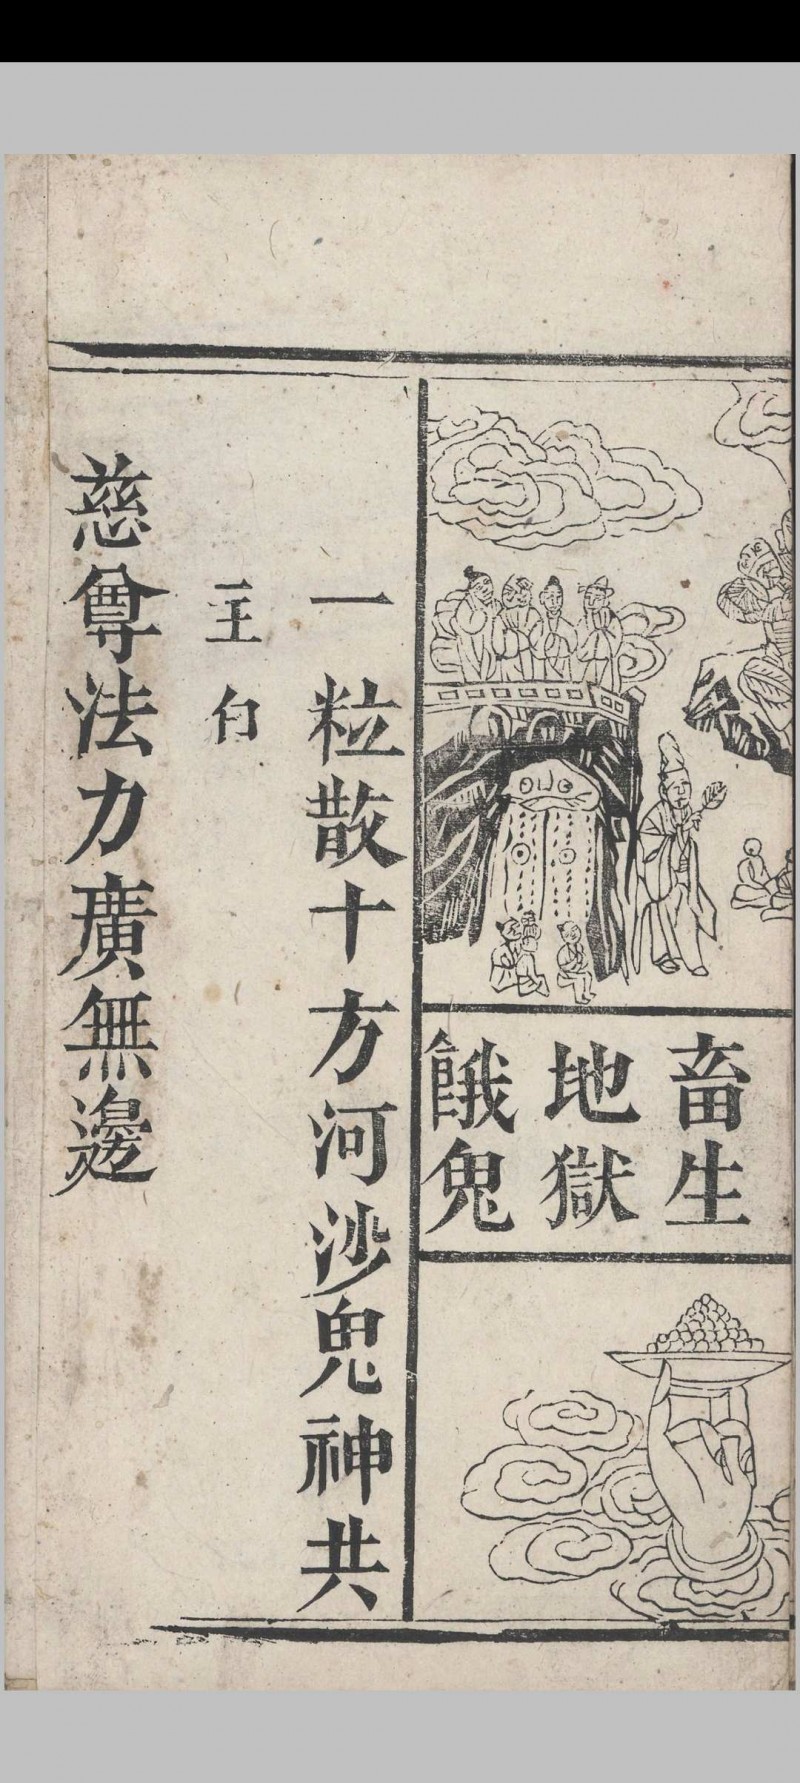 畜生
地獄
餓鬼
一粒散十方河沙鬼神共
主白
慈尊法力廣無邊